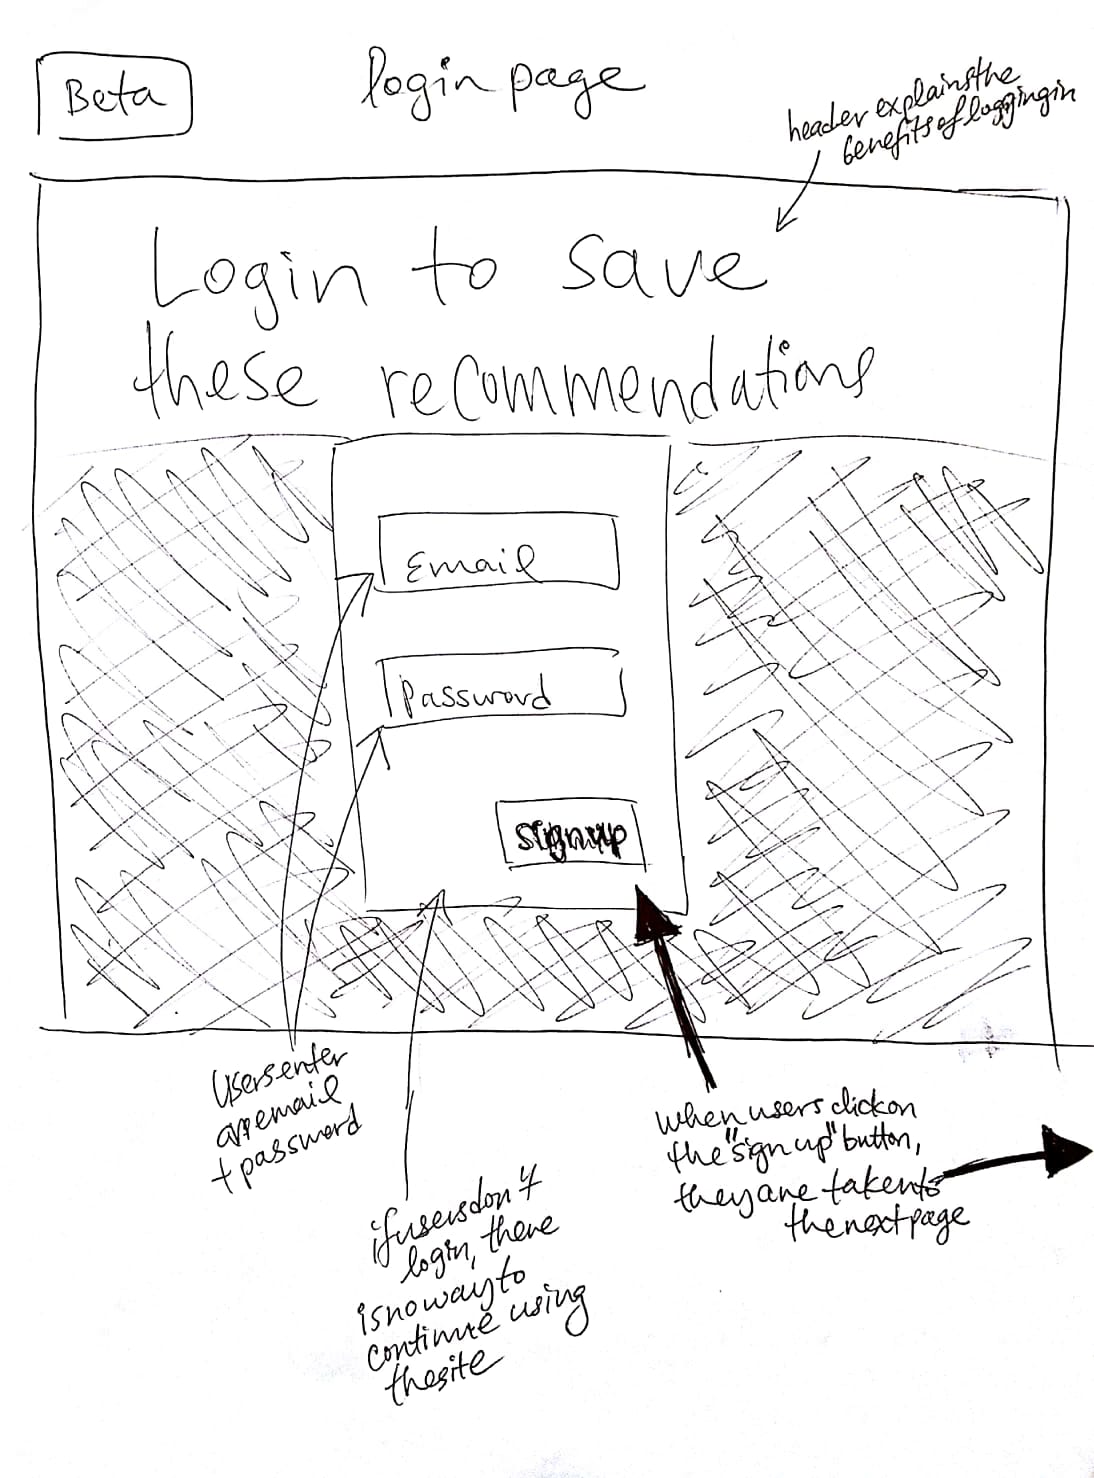 Beta
login page
header explains the
benefits of logging in
Login to save
these recommendations
Email
Password
sign up
Users enter
an email
+ password
if users don't
login, there
is no way to
continue using
the site
when users click on
the "sign up" button,
they are taken to
the next page